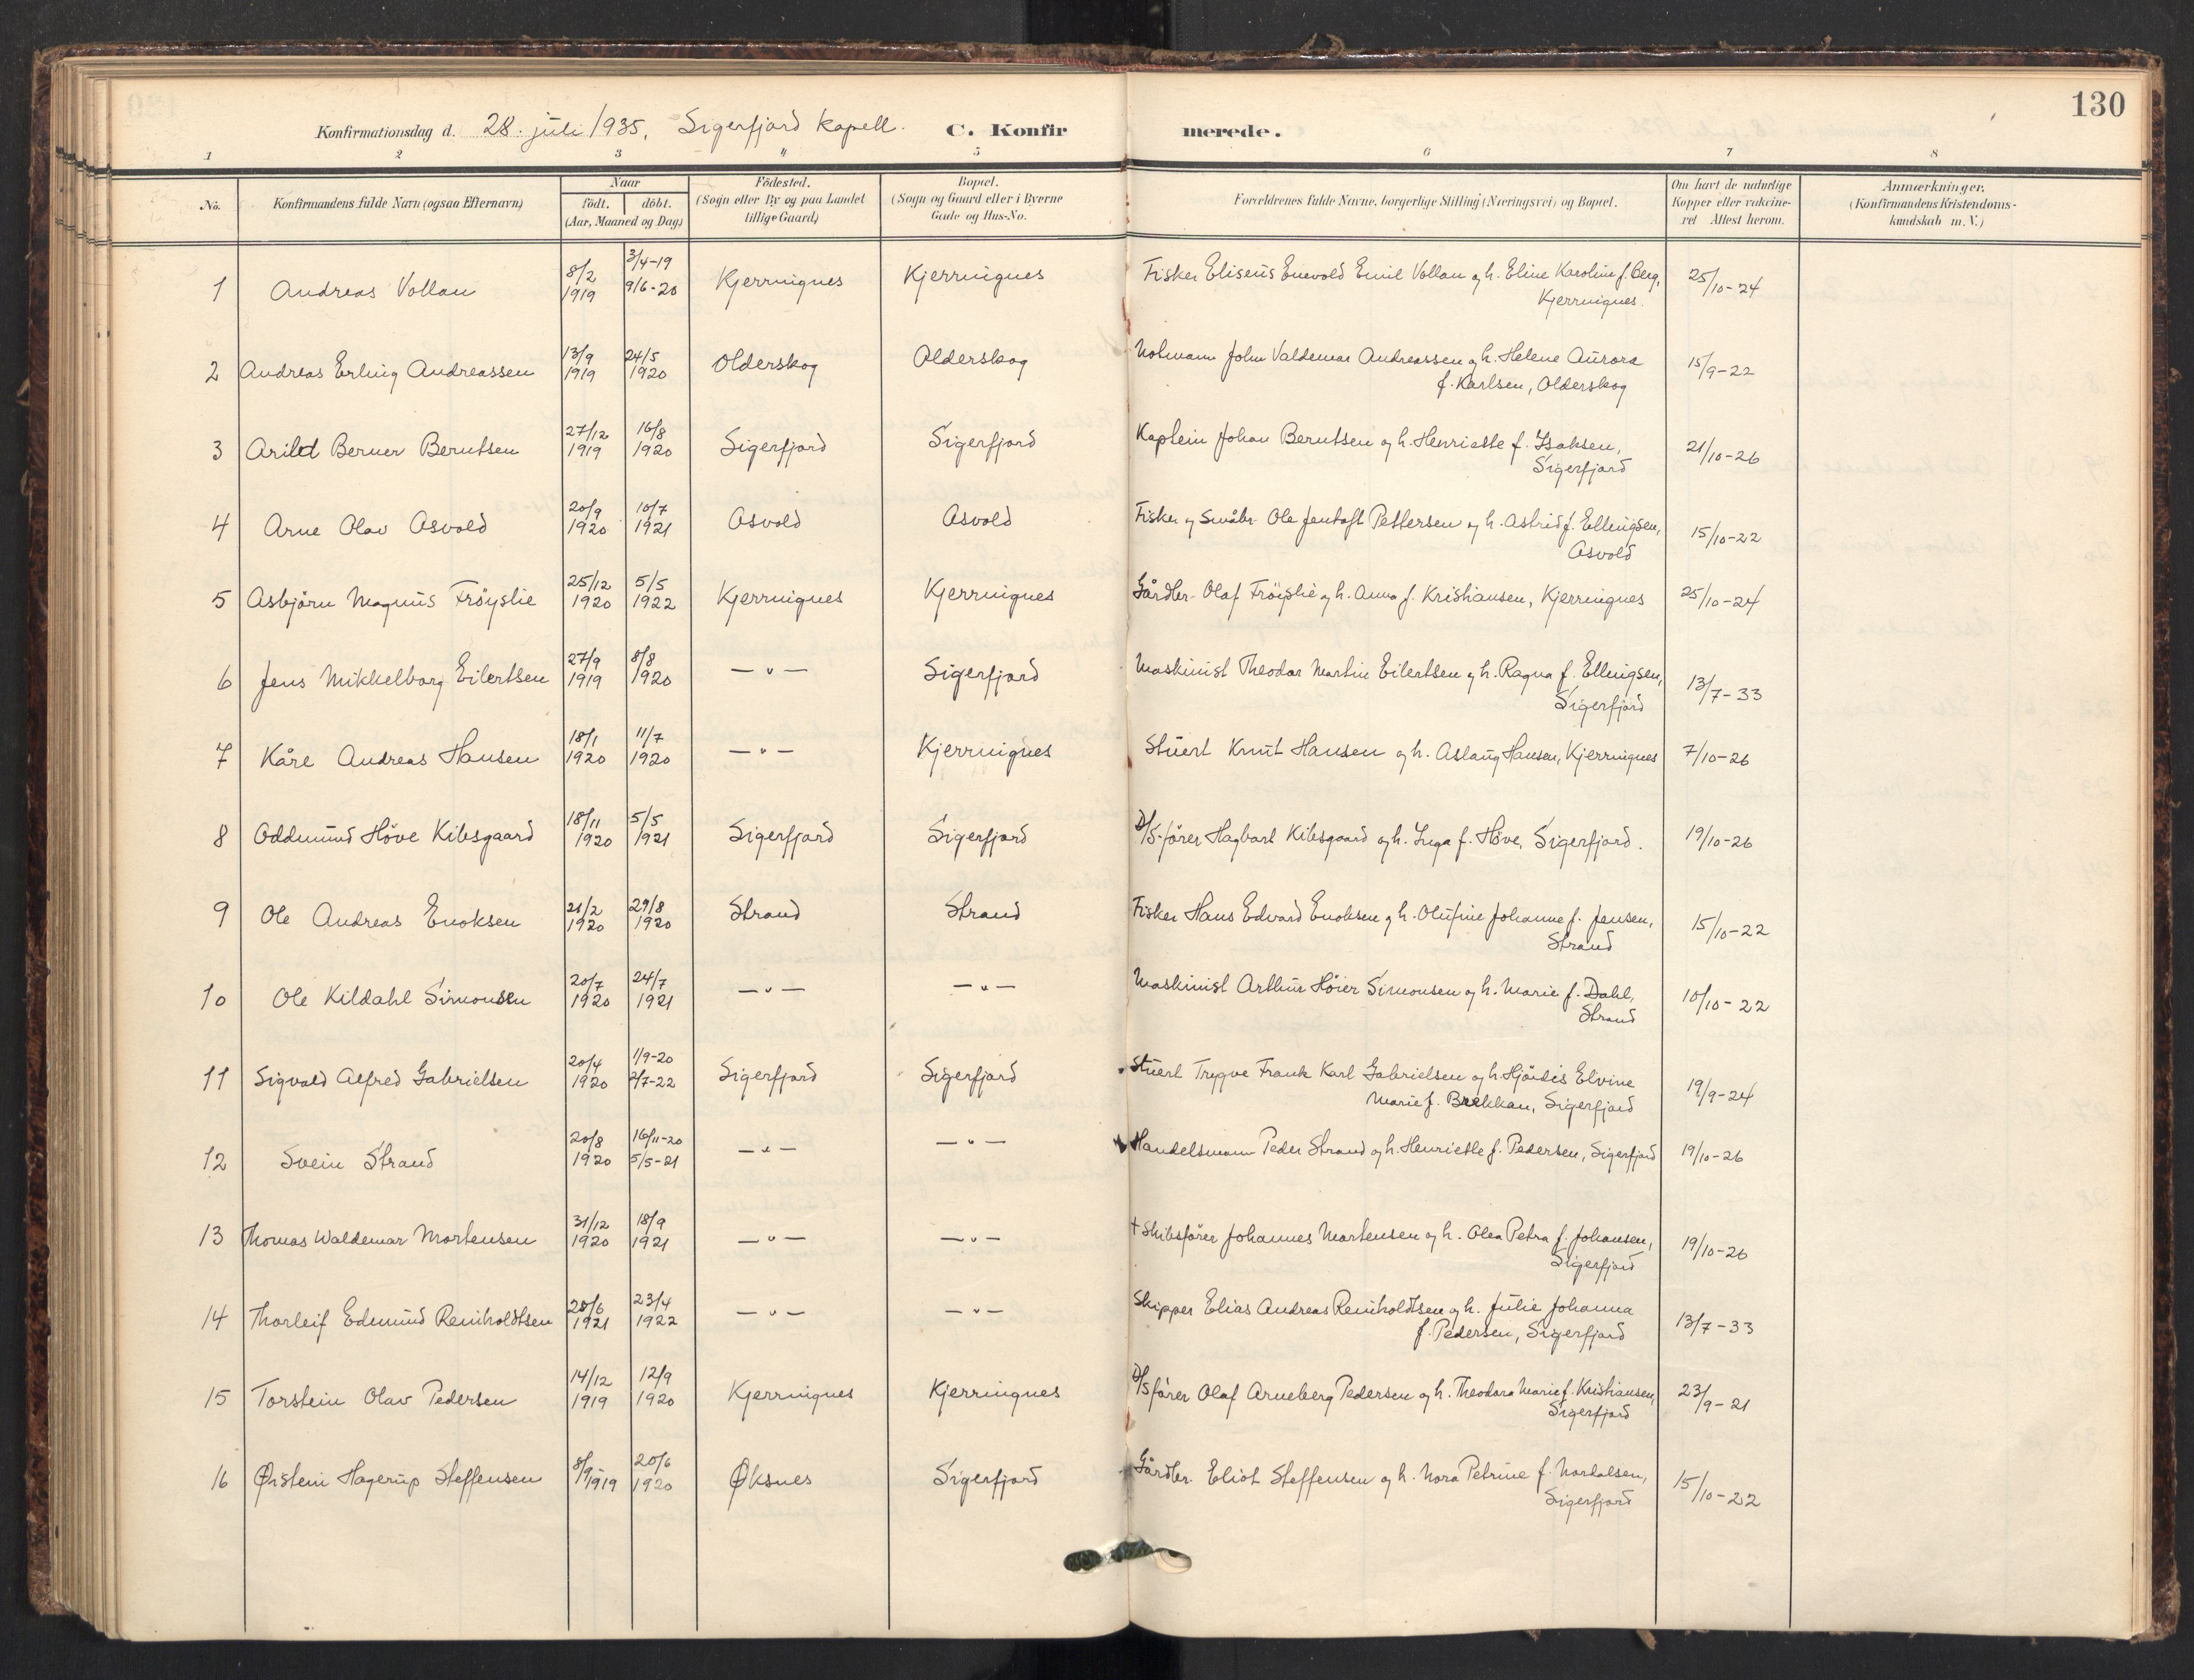 130
Konfirmationsdag d. 28. juli 1935. Sigerfjord kapell. C. Konfirmerede.
1 2 3 4 5 6 7 8
No. Konfirmandens fulde Navn (ogsaa Efternavn) Naar födt. döbt. (Aar, Maaned og Dag) Födested. (Sogn eller By og paa Landet tillige Gaard) Bopæl. (Sogn og Gaard eller i Byerne Gade og Hus-No. Forældrenes fulde Navne, borgerlige Stilling (Næringsvei) og Bopæl. Om havt de naturlige Kopper eller vakcineret Attest herom. Anmærkninger. (Konfirmandens Kristendomskundskab m. V.)
1 Andreas Vollan 8/2 1919 3/4-19 9/6-20 Kjerringnes Kjerringnes Fisker Eliseus Enevold Emil Vollan og h. Eline Karoline f. Berg, Kjerringnes. 25/10-24
2 Andreas Erling Andreassen 13/9 1919 24/5 1920 Olderskog Olderskog Notmann John Valdemar Andreassen og h. Helene Aurora f. Karlsen, Olderskog 15/9-22
3 Arild Berner Berntsen 27/12 1919 16/8 1920 Sigerfjord Sigerfjord Kaptein Johan Berntsen og h. Henriette f. Isaksen, Sigerfjord 21/10-26
4 Arne Olav Osvold 20/9 1920 10/7 1921 Osvold Osvold Fisker og småbr. Ole Jentoft Pettersen og h. Astrid f. Ellingsen, Osvold 15/10-22
5 Asbjörn Magnus Fröyslie 25/12 1920 5/5 1922 Kjerringnes Kjerringnes Gårdbr. Olaf Fröislie og h. Anna f. Kristiansen, Kjerringnes 25/10-24
6 Jens Mikkelborg Eilertsen 27/9 1919 8/8 1920 — " — Sigerfjord Maskinist Theodor Martin Eilertsen og h. Ragna f. Ellingsen, Sigerfjord 13/7-33
7 Kåre Andreas Hansen 18/1 1920 11/7 1920 — " — Kjerringnes Stuert Knut Hansen og h. Aslaug Hansen, Kjerringnes 7/10-26
8 Oddmund Höve Kibsgaard 18/11 1920 5/5 1921 Sigerfjord Sigerfjord D/S-förer Hagbart Kibsgaard og h. Inga f. Höve, Sigerfjord. 19/10-26
9 Ole Andreas Enoksen 21/2 1920 29/8 1920 Strand Strand Fisker Hans Edvard Enoksen og h. Olufine Johanne f. Jensen, Strand 15/10-22
10 Ole Kildahl Simonsen 20/7 1920 24/7 1921 — " — — " — Maskinist Arthur Höier Simonsen og h. Marie f. Dahl, Strand 10/10-22
11 Sigvald Alfred Gabrielsen 20/4 1920 1/9-20 2/7-22 Sigerfjord Sigerfjord Stuert Trygve Frank Karl Gabrielsen og h. Hjördis Elvine Marie f. Brekkan, Sigerfjord 19/9-24
12 Svein Strand 20/8 1920 16/11-20 5/5-21 — " — — " — Handelsmann Peder Strand og h. Henriette f. Pedersen, Sigerfjord 19/10-26
13 Thomas Waldemar Mortensen 31/12 1920 18/9 1921 — " — — " — † Skibsförer Johannes Mortensen og h. Olea Petra f. Johansen, Sigerfjord 19/10-26
14 Thorleif Edmund Reinholdtsen 20/6 1921 23/4 1922 — " — — " — Skipper Elias Andreas Reinholdtsen og h. Julie Johanna f. Pedersen, Sigerfjord 13/7-33
15 Torstein Olav Pedersen 14/12 1919 12/9 1920 Kjerringnes Kjerringnes D/S förer Olaf Arneberg Pedersen og h. Theodora Marie f. Kristiansen, Sigerfjord 23/9-21
16 Øistein Hagerup Steffensen 8/9 1919 20/6 1920 Øksnes Sigerfjord Gårdbr. Eliot Steffensen og h. Nora Petrine f. Sigerfjord 15/10-22